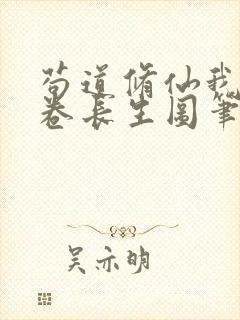 苟道修仙我
卷长生图笔
吴亦明